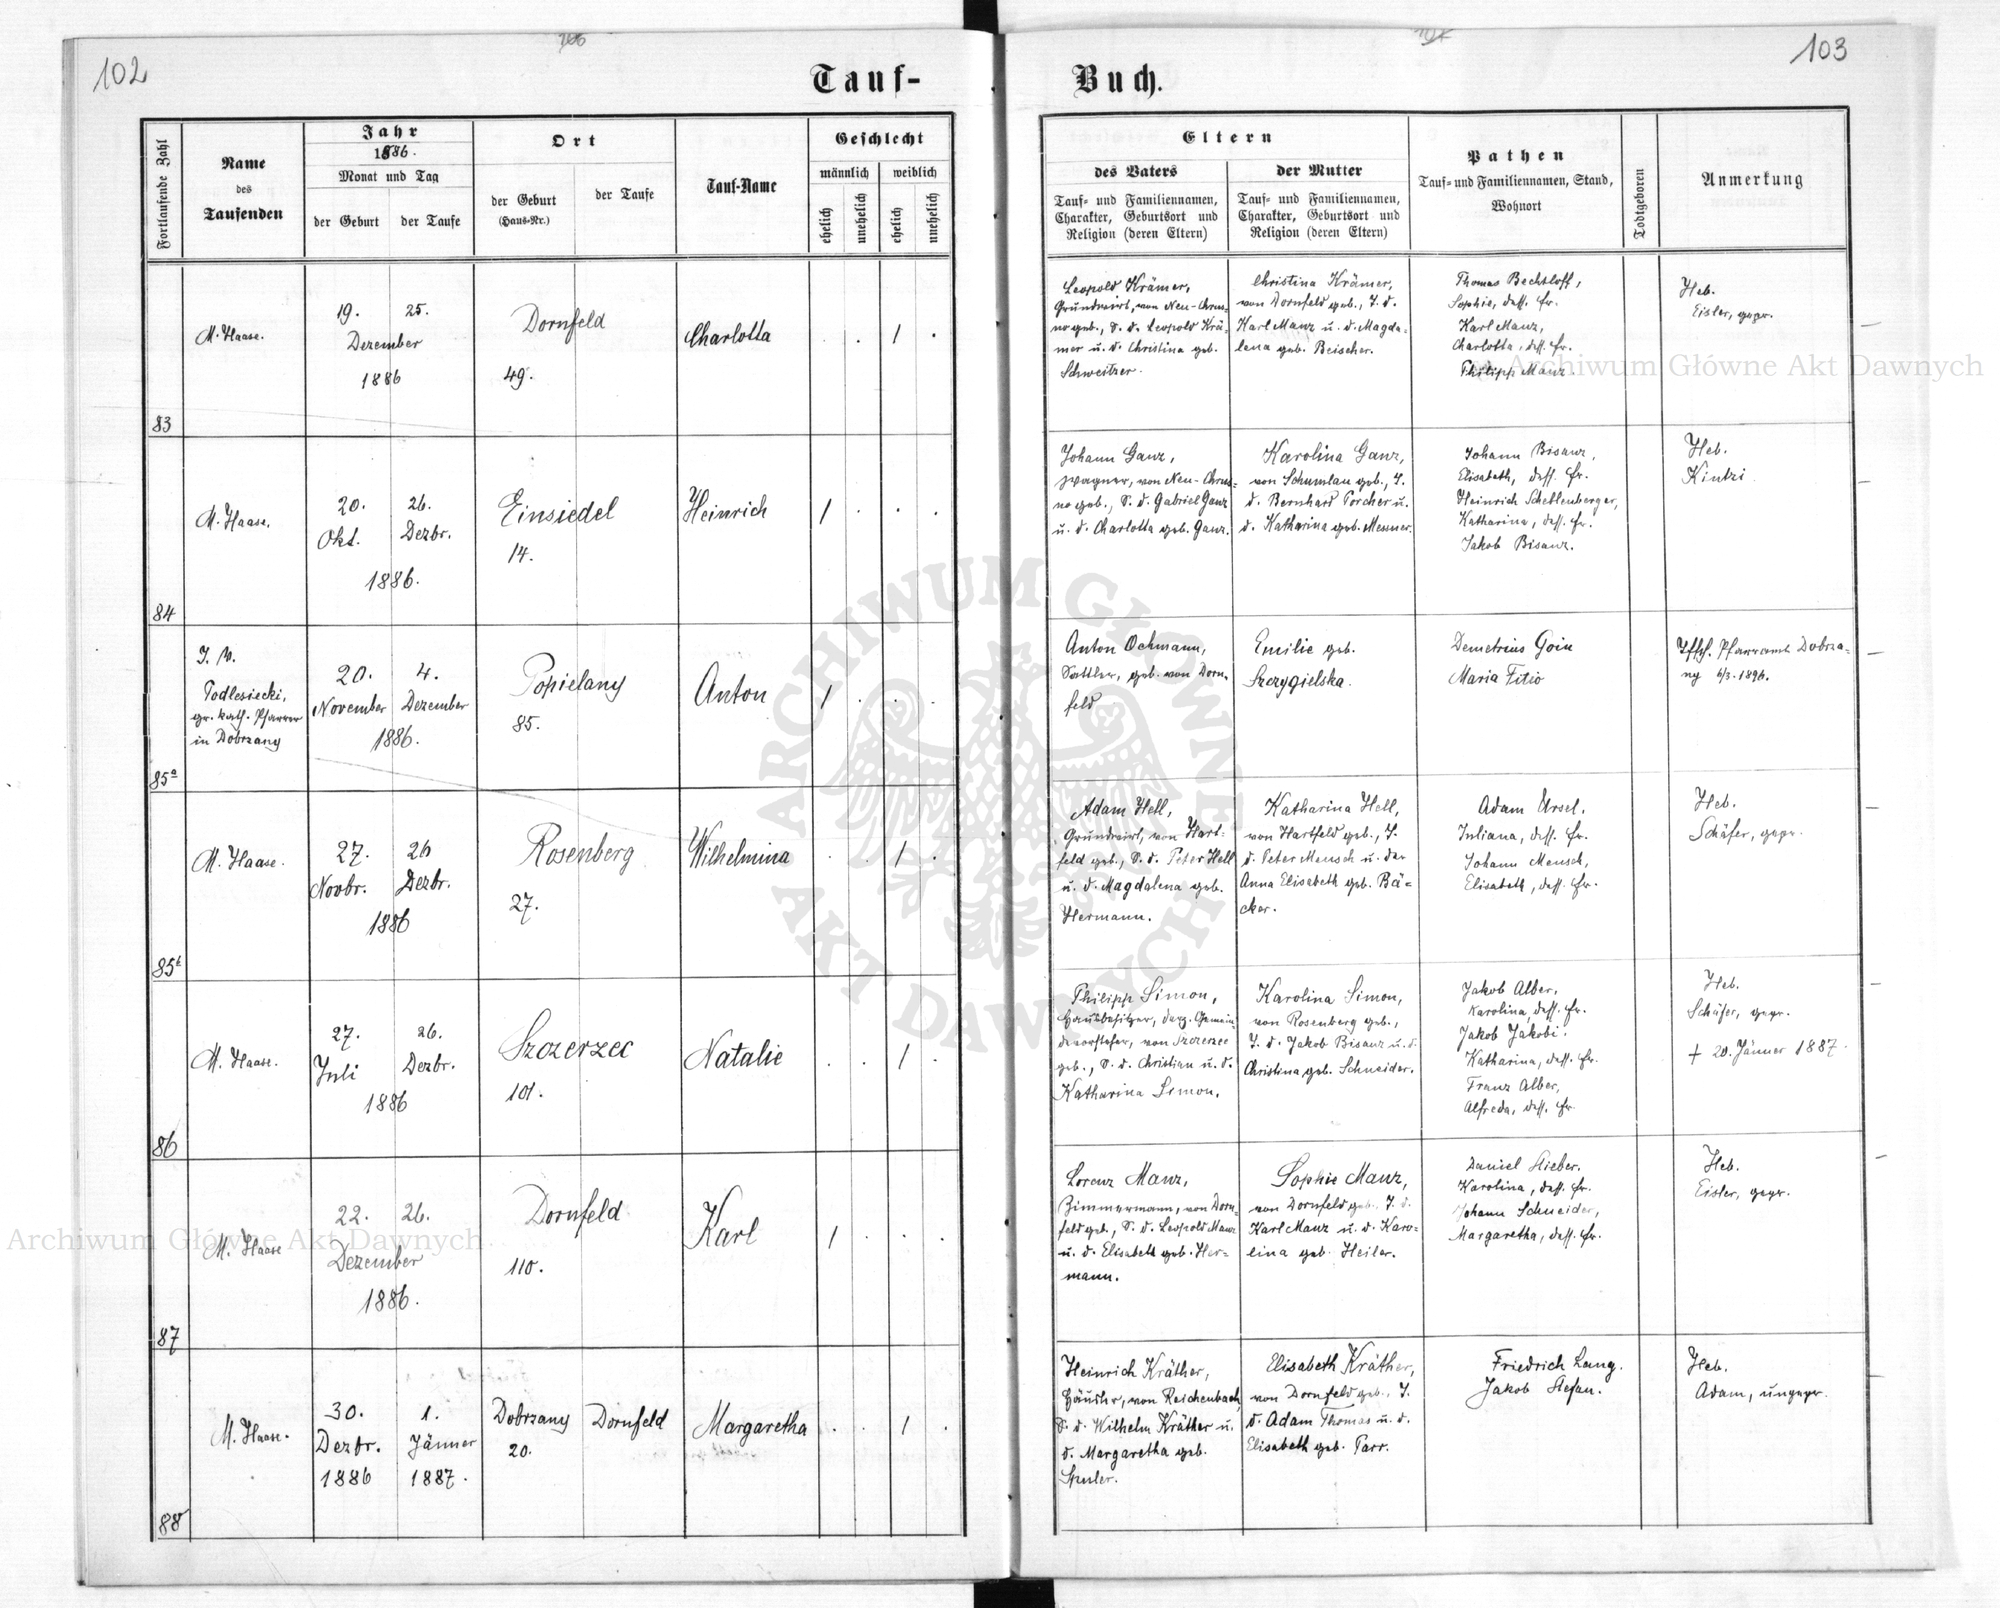 102
103
Tauf-
Buch.
Fortlaufende Zahl
Name
des
Taufenden
Jahr
1886.
Monat und Tag
der Geburt
der Taufe
Ort
der Geburt
(Haus-Nr.)
der Taufe
Tauf-Name
Geschlecht
männlich
weiblich
ehelich
unehelich
ehelich
unehelich
Eltern
des Vaters
Tauf- und Familiennamen,
Charakter, Geburtsort und
Religion (deren Eltern)
der Mutter
Tauf- und Familiennamen,
Charakter, Geburtsort und
Religion (deren Eltern)
Pathen
Tauf- und Familiennamen, Stand,
Wohnort
Todtgeboren
Anmerkung
83
M. Haase.
19.
25.
Dezember
1886
Dornfeld
49.
Charlotta
Leopold Krämer,
Grundwirt, von Neu-Chrus-
no geb., S. d. Leopold Krä-
mer u. d. Christina geb.
Schweitzer.
Christina Krämer,
von Dornfeld geb., T. d.
Karl Manz u. d. Magda-
lena geb. Beischer.
Thomas Bechtloff,
Sophie, dess. Fr.
Karl Manz,
Charlotta, dess. Fr.
Philipp Manz.
Heb.
Eisler, gepr.
84
M. Haase.
20.
Okt.
26.
Dezbr.
1886.
Einsiedel
14.
Heinrich
Johann Ganz,
Wagner, von Neu-Chrus-
no geb., S. d. Gabriel Ganz
u. d. Charlotta geb. Ganz.
Karolina Ganz,
von Schumlau geb., T.
d. Bernhard Porcher u.
d. Katharina geb. Messner.
Johann Bisanz,
Elisabeth, dess. Fr.
Heinrich Schellenberger,
Katharina, dess. Fr.
Jakob Bisanz.
Heb.
Kintzi
85a
Podlesiecki,
gr. kath. Pfarrer
in Dobrzany
20.
November
4.
Dezember
1886.
Popielany
85.
Anton
Anton Ochmann,
Sattler, geb. von Dorn-
feld
Emilie geb.
Szczygielska.
Demetrius Goin
Maria Fitio
Pfarramt Dobrza-
ny 6/3. 1896.
85b
M. Haase.
27.
Novbr.
26
Dezbr.
1886
Rosenberg
27.
Wilhelmina
Adam Hell,
Grundwirt, von Hart-
feld geb., S. d. Peter Hell
u. d. Magdalena geb.
Hermann.
Katharina Hell,
von Hartfeld geb., T.
d. Peter Mensch u. der
Anna Elisabeth geb. Bä-
cker.
Adam Ursel,
Juliana, dess. Fr.
Johann Mensch,
Elisabeth, dess. Fr.
Heb.
Schäfer, gepr.
86
M. Haase.
27.
Juli
26.
Dezbr.
1886
Szczerzec
101.
Natalie
Philipp Simon,
Hausbesitzer, derz. Gemein-
devorsteher, von Szczerzec
geb., S. d. Christian u. d.
Katharina Simon.
Karolina Simon,
von Rosenberg geb.,
T. d. Jakob Bisanz u. d.
Christina geb. Schneider.
Jakob Alber,
Karolina, dess. Fr.
Jakob Jakobi.
Katharina, dess. Fr.
Franz Alber,
Alfreda, dess. Fr.
Heb.
Schäfer, gepr.
+ 20. Jänner 1887.
87
M. Haase
22.
26.
Dezember
1886.
Dornfeld
110.
Karl
Lorenz Manz,
Zimmermann, von Dorn-
feld geb., S. d. Leopold Manz
u. d. Elisabeth geb. Her-
mann.
Sophie Manz,
von Dornfeld geb. T. d.
Karl Manz u. d. Karo-
lina geb. Heiler.
Daniel Stieber.
Karolina, dess. Fr.
Johann Schneider,
Margaretha, dess. Fr.
Heb.
Eisler, gepr.
88
M. Haase.
30.
Dezbr.
1886
1.
Jänner
1887.
Dobrzany
20.
Dornfeld
Margaretha
Heinrich Kräther,
Häusler, von Reichenbach,
S. d. Wilhelm Kräther u.
d. Margaretha geb.
Spuler.
Elisabeth Kräther,
von Dornfeld geb., T.
d. Adam Thomas u. d.
Elisabeth geb. Parr.
Friedrich Lang.
Jakob Stefan.
Heb.
Adam, ungepr.
Archiwum Główne Akt Dawnych
Archiwum Główne Akt Dawnych
ARCHIWUM GŁÓWNE AKT DAWNYCH